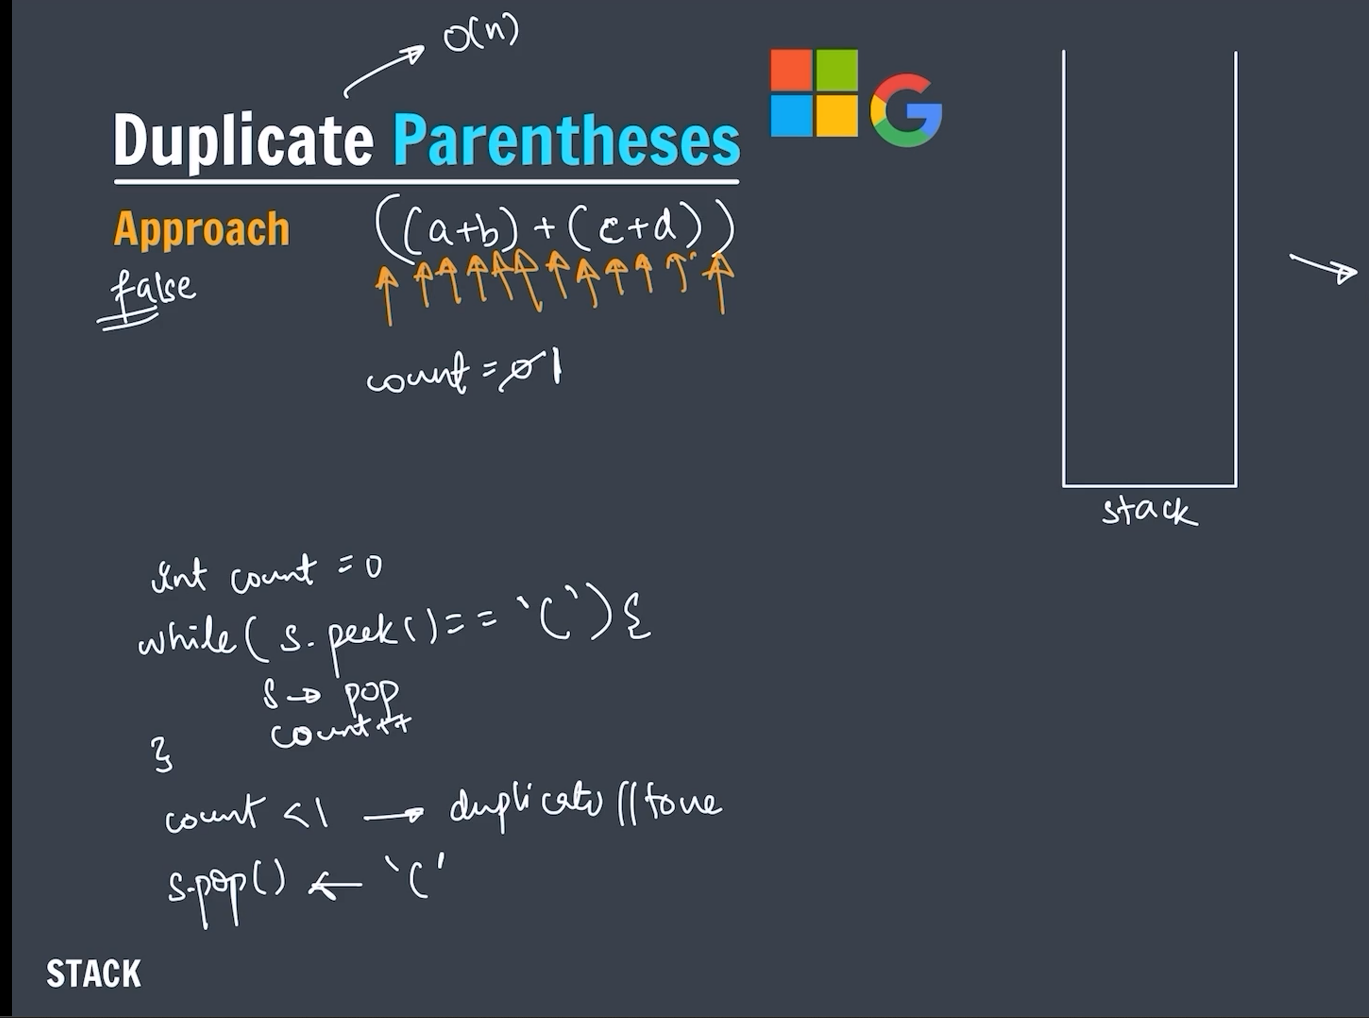 O(n)
Duplicate Parentheses
Approach ((a+b) + (c+d))
false
count = 0 1
stack
int count = 0
while( s.peek() == '(') {
s → pop
count++
}
count < 1 → duplicate // true
s.pop() ← '('
STACK